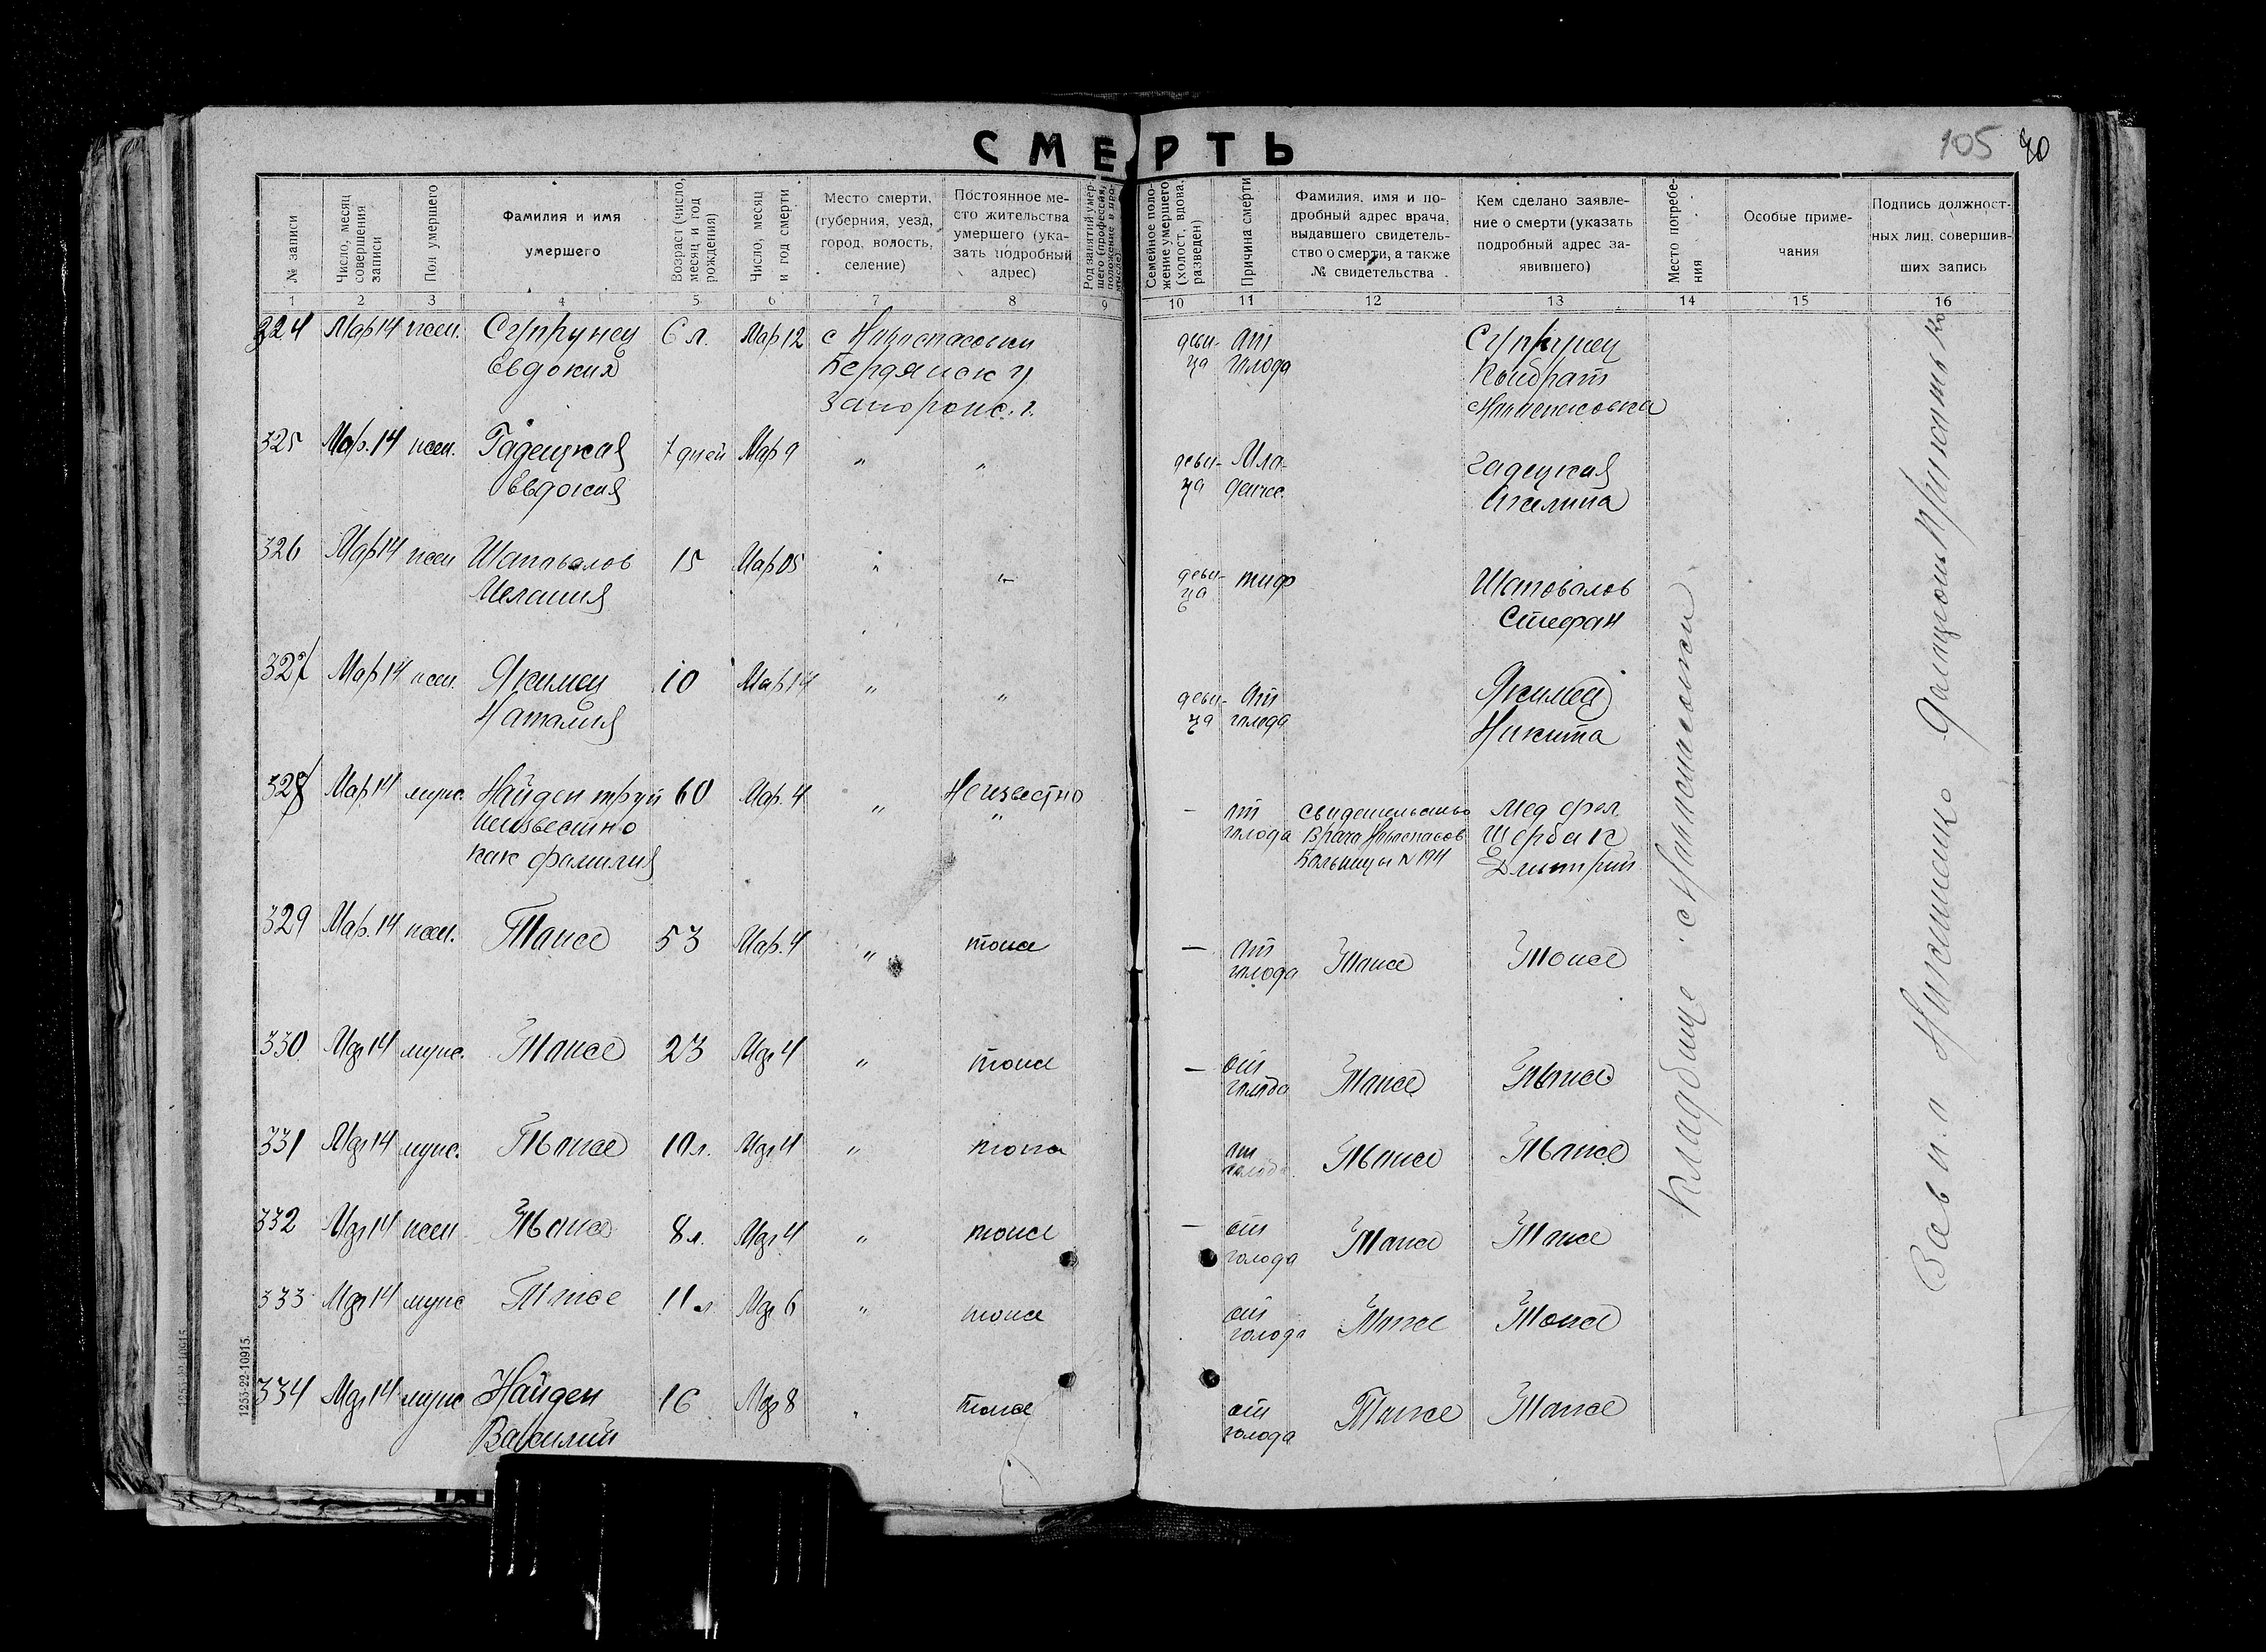 СМЕРТЬ
105 40
№ записи
Число, месяц совершения записи
Пол умершего
Фамилия и имя умершего
Возраст (число, месяц и год рождения)
Число, месяц и год смерти
Место смерти, (губерния, уезд, город, волость, селение)
Постоянное место жительства умершего (указать подробный адрес)
Род занятий умершего (профессия, положение в промысле)
Семейное положение умершего (холост, вдова, разведен)
Причина смерти
Фамилия, имя и подробный адрес врача, выдавшего свидетельство о смерти, а также № свидетельства
Кем сделано заявление о смерти (указать подробный адрес заявившего)
Место погребения
Особые примечания
Подпись должностных лиц, совершивших запись
1 2 3 4 5 6 7 8 9 10 11 12 13 14 15 16
324 Мар 14 жен. Супрунец 6 л. Мар 12 с Новоспасовки деви- От Супрунец
Евдокия Бердянск у ца голода Кондрат
Запорожс. г. Новоспасовка
325 Мар. 14 жен. Гадецкая 7 дней Мар 9 " " деви- Мла- Гадецкая
Евдокия ца денчес. Акелина
326 Мар 14 жен Шаповалов 15 Мар 05 " " деви- тиф Шаповалов
Мелания ца Стефан
327 Мар 14 жен. Якимец 10 Мар 14 " " деви- От Якимец
Наталия ца голода Никита
328 Мар 14 муж. Найден труп 60 Мар. 4 " Неизвестно - от свидетельство Мед фел.
неизвестно " голода Врача Новоспасов Щербак
как фамилия Больницы N 194 Дмитрий
329 Мар. 14 жен. Тоже 53 Мар. 4 " тоже - От Тоже Тоже
голода
330 Мар 14 муж. Тоже 23 Мар 4 " тоже - от Тоже Тоже
голода
331 Мар 14 муж. Тоже 10 л. Мар 4 " тоже от Тоже Тоже
голода
332 Мар 14 жен Тоже 8 л. Мар 4 " тоже - от Тоже Тоже
голода
333 Мар 14 муж Тоже 11 л Мар 6 " тоже от Тоже Тоже
голода
334 Мар 14 муж Найден 16 Мар 8 тоже от Тоже Тоже
Василий голода
Кладбище с Новоспасовки
Зав п.о
1253-22-10915.